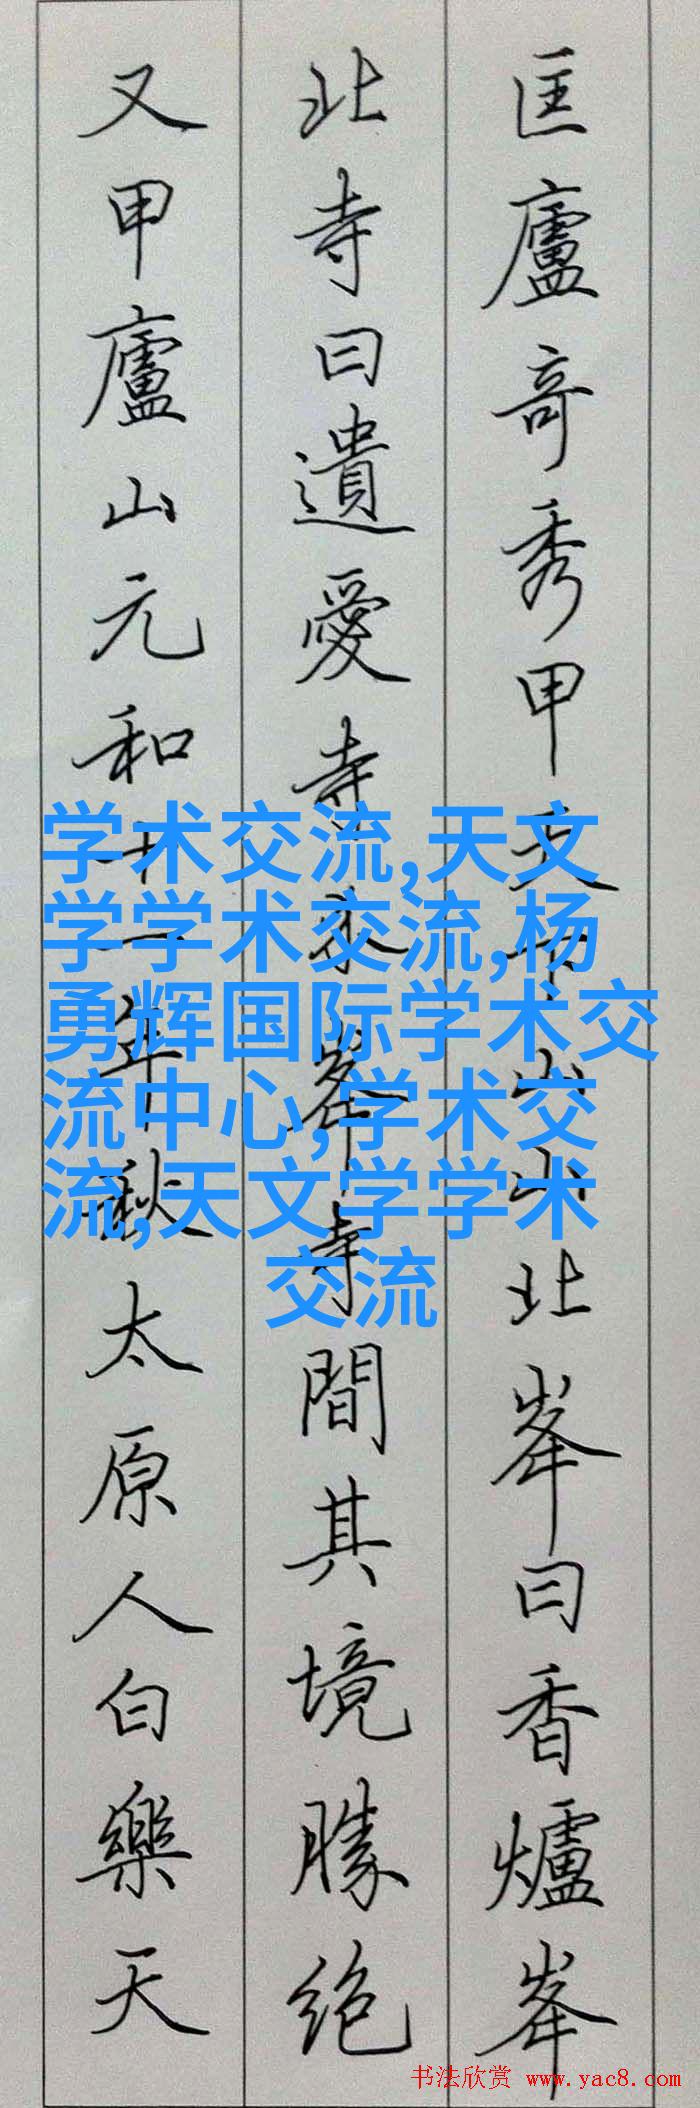 匡廬奇秀甲天下山山北峯曰香爐峯
北寺曰遺愛寺峯寺間其境勝绝
又甲廬山元和十一年秋太原人白樂天
学术交流,天文
学学术交流,杨
勇辉国际学术交
流中心,学术交
流,天文学学术
交流
书法欣赏 www.yac8.com